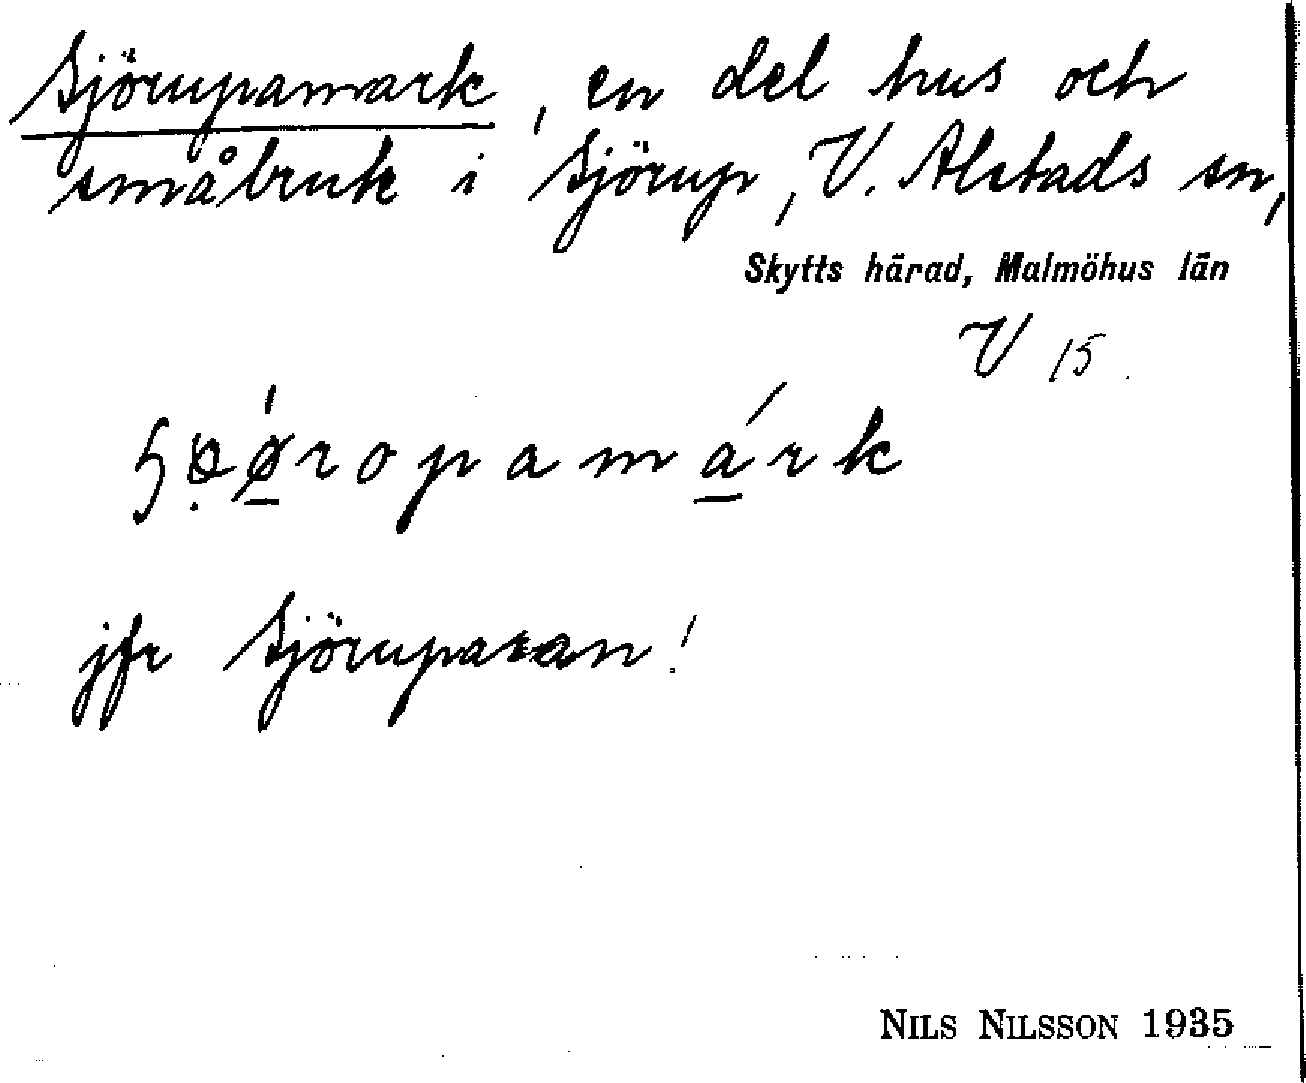 Sjörupamark, en del hus och
småbruk i Sjörup, V. Alstads sn,
Skytts härad, Malmöhus län
V 15.
jfr Sjöruparan!
NILS NILSSON 1935